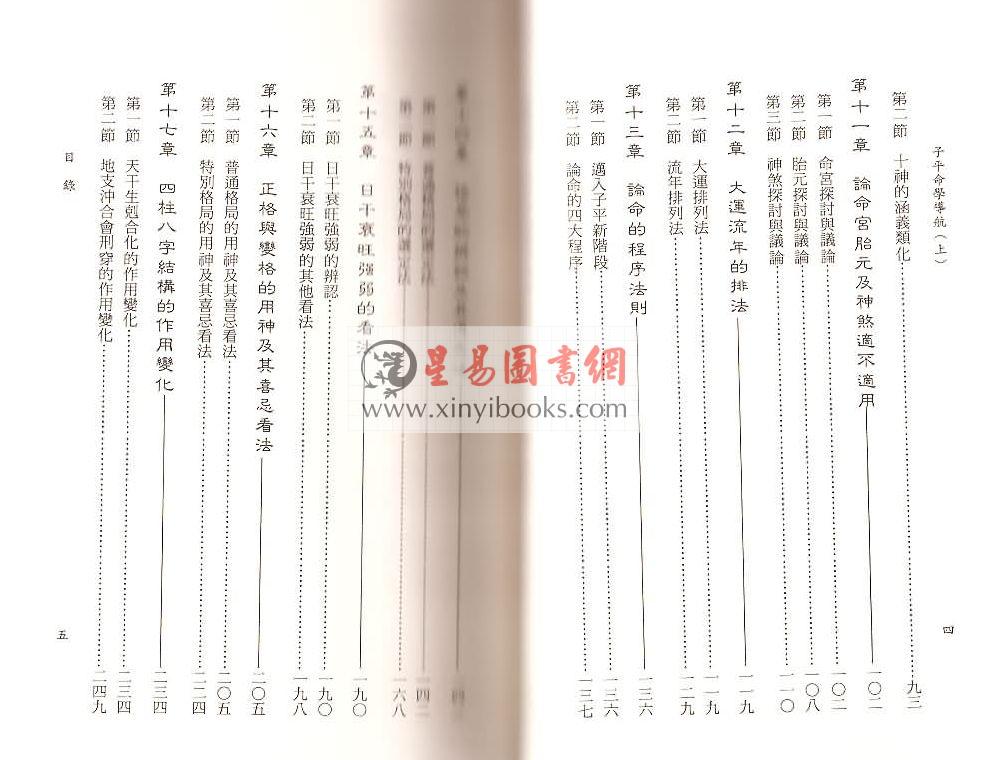 子平命學導航（上）
四
第二節 十神的涵義類化 九三
第十一章 論命宮胎元及神煞適不適用 一〇二
第一節 命宮探討與議論 一〇二
第二節 胎元探討與議論 一〇八
第三節 神煞探討與議論 一一〇
第十二章 大運流年的排法 一一九
第一節 大運排列法 一一九
第二節 流年排列法 一二九
第十三章 論命的程序法則 一三六
第一節 邁入子平新階段 一三六
第二節 論命的四大程序 一三七
第十四章
第一節 普通格局的選定法 一四二
第二節 特別格局的選定法 一六八
第十五章 日干衰旺強弱的看法 一九〇
第一節 日干衰旺強弱的辨認 一九〇
第二節 日干衰旺強弱的其他看法 一九八
第十六章 正格與變格的用神及其喜忌看法 二〇五
第一節 普通格局的用神及其喜忌看法 二〇五
第二節 特別格局的用神及其喜忌看法 二二四
第十七章 四柱八字結構的作用變化 二三四
第一節 天干生剋合化的作用變化 二三四
第二節 地支沖合會刑穿的作用變化 二四九
目錄
五
星易圖書網
www.xinyibooks.com